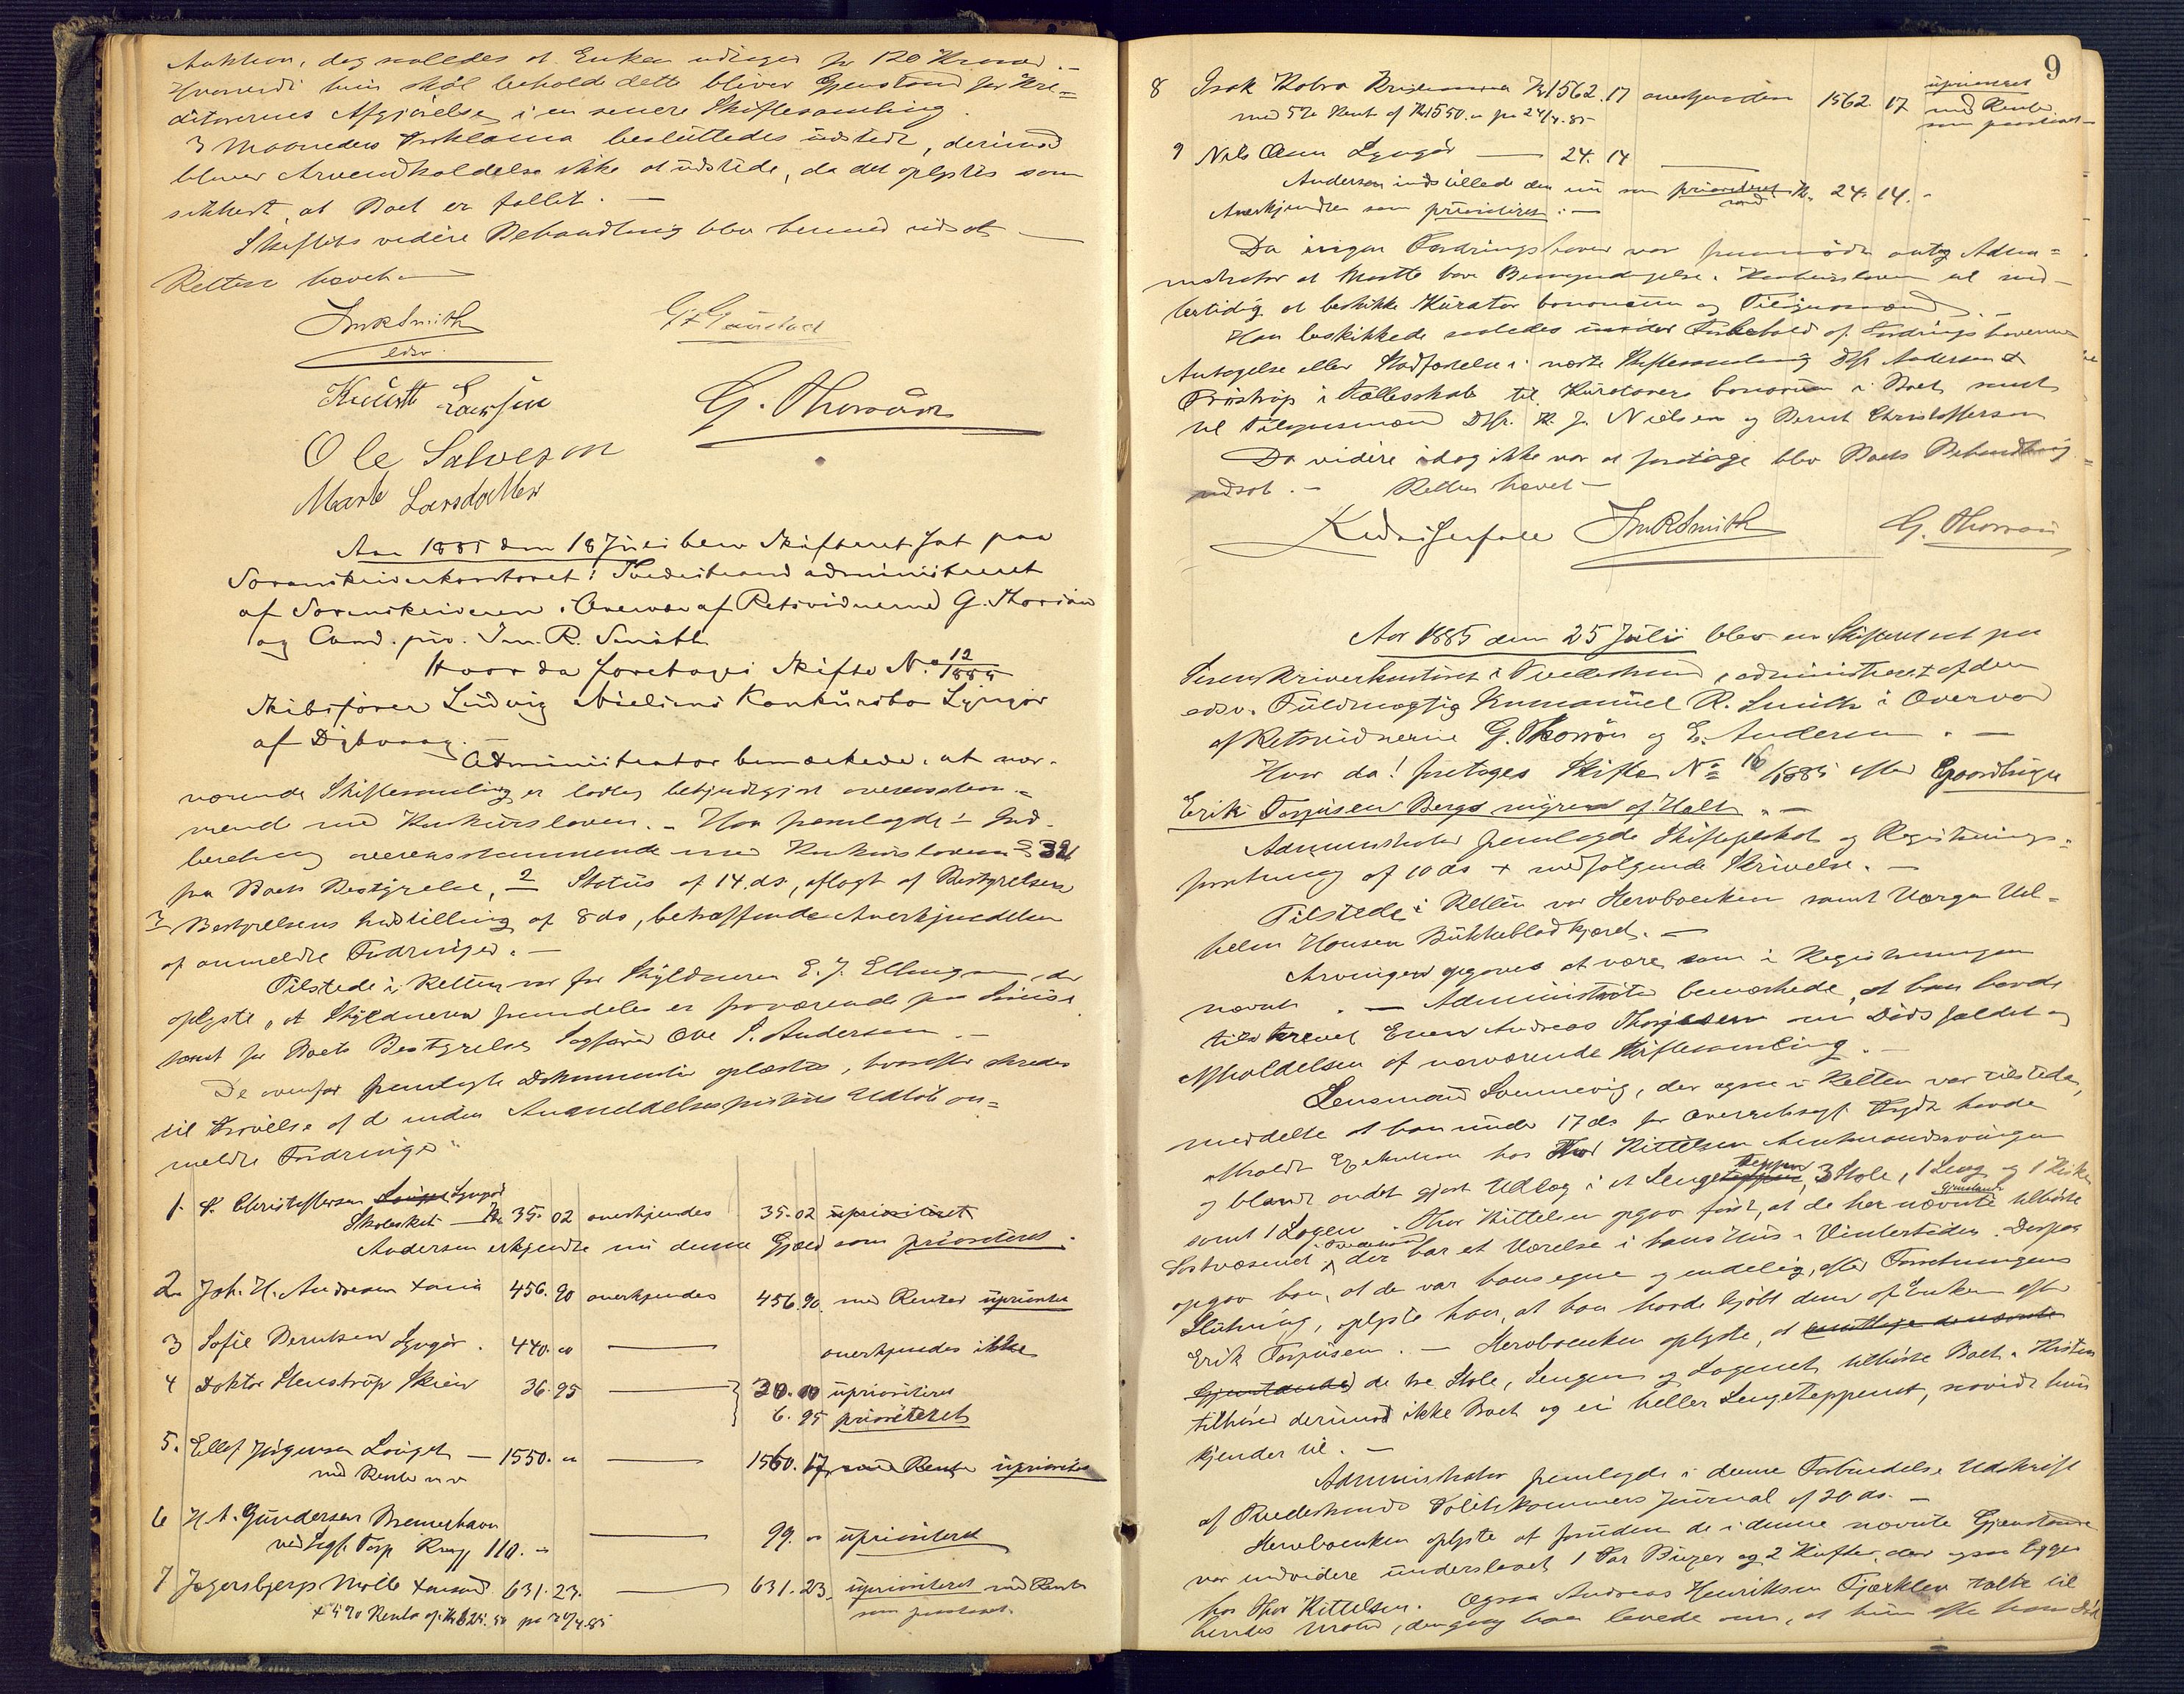 Auktion, dog saaledes at Enken udtager for 120 Kroner.
Hvorvidt hun skal beholde dette bliver Gjenstand for Kre=
ditorernes Afgjørelse i en senere Skiftesamling.
3 Maaneders Proklama besluttedes udstedt, derimod
bliver Arveindkaldelse ikke at udstede, da det oplystes som
sikkert, at Boet er fallit.
Skiftets videre Behandling blev hermed udsat
Retten hævet
ImRSmith
edsv.
Knudt Larsen
G. Thorsøn
Ole Salvesen
Marte Larsdatter
Aar 1885 den 18 Juli blev Skifteret sat paa
Sorenskriverkontoret i Tvedestrand administreret
af Sorenskriveren i Overvær af Retsvidnerne G. Thorsøn
og Cand. jur. Im. R. Smith
Hvor da foretoges Skifte No 12/1885
Skibsfører Ludvig Nielsens Konkursbo Lyngør
af Dybvaag.
Administrator bemærkede, at nær-
værende Skiftesamling er lovlig bekjendtgjort overensstem=
mende med Konkursloven. - Han fremlagde 1 Ind-
beretning overensstemmende med Konkurslovens §
fra Boets Bestyrelse, 2 Status af 14. ds., aflagt af Bestyrelsen
3 Bestyrelsens Indstilling af 8 ds, betræffende Anerkjendelsen
af anmeldte Fordringer.
Tilstede i Retten var for Skyldneren E. J. Ellingsen, der
oplyste, at Skyldneren fremdeles er fraværende paa
samt for Boets Bestyrelse Sagfører Ove S. Andersen
De ovenfor fremlagte Dokumenter oplæstes, hvorefter skredes
til Prøvelse af de inden Anmeldelsesfristens Udløb an=
meldte Fordringer
1. S. Christoffersen Lyngør
Skoleskat Kr 35. 02 anerkjendes 35.02 uprioriteret
Andersen erkjendte nu denne Gjæld som prioriteret.
2 Joh. H. Andresen 456. 90 anerkjendes 456.90 med Renter uprioriteret
3 Sofie Berntsen Lyngør. 440. anerkjendes ikke
4 Doktor Stenstrup Skien 36. 95 30. 00 uprioriteret
6. 95 prioriteret
5. Ellef Jørgensen 1550. 1560. 17 Rente uprioriteret
med Rente
6 H. A. Gundersen Bremerhavn
ved Sagf. 110. 99. uprioriteret
7 Jegersbjergs Mølle 631. 23. 631. 23. uprioriteret med Rente
+ 5% Rente af
9
8 Isak Kobro Kr 1562. 17 anerkjendes 1562. 17 uprioriteret
med 5% Rente af Kr 1550. fra 24/4. 85 med Rente
som paastaaet
9 Nils Lyngør 24. 14
Andersen indstillede den nu som prioriteret Kr. 24. 14.
Anerkjendtes som prioriteret.
Da ingen Fordringshaver var fremmødt antog Admi=
nistrator at maatte have Bemyndigelse i Konkursloven til mid-
lertidig at beskikke Kurator bonorum og Tilsynsmænd.
Han beskikkede saaledes under Forbehold af Fordringshavernes
Antagelse eller Stadfæstelse i næste Skiftesamling Dhr Andersen &
Frøstrup i Fællesskab til Kuratores bonorum i Boet samt
til Tilsynsmænd Dhr. K. J. Nielsen og Bernt Christoffersen
Da videre idag ikke var at foretage blev Boets Behandling
udsat. - Retten hævet -
ImRSmith
G. Thorsøn
Aar 1885 den 25 Juli blev en Skifteret sat paa
Sorenskriverkontoret i Tvedestrand, administreret af den
edsv. Fuldmægtig Immanuel R. Smith i Overvær
af Retsvidnerne G. Thorsøn og E. Andersen.
Hvor da! foretoges Skifte No 16/1885 efter Gaardbruger
Erik Torjusen Bergsmyren af Holt.
Administrator fremlagde Skifteplakat og Registrerings-
forretning af 10 ds + medfølgende Skrivelse.
Tilstede i Retten var Hervborken samt Værge Vil-
helm Hansen Bukkebladkjær.
Arvinger opgaves at være som i Registreringen
nævnt. - Administrator bemærkede, at han havde
tilskrevet Even Andreas Thorjusen om Dødsfaldet og
Afholdelsen af nærværende Skiftesamling.
Lensmand Svennevig, der ogsaa i Retten var tilstede,
meddelte at han under 17 ds for Overretssagf. havde
afholdt Exekution hos Thor Kittelsen
og blandt andet gjort Udlæg i et Sengeteppe, 3 Stole, 1 Seng og 1 Kiste
samt 1 Lagen. Thor Kittelsen opgav først, at de her nævnte Gjenstande tilhørte
Fattigvæsenet, der har et Værelse i hans Hus i Vintertiden. Derpaa
opgav han, at de var hans egne og endelig, efter Forretningens
Slutning, oplyste han, at han havde kjøbt dem af Enken efter
Erik Torjusen. - oplyste, at
de tre Stole, Sengen og Lagenet tilhørte Boet. Kisten
tilhører derimod ikke Boet og ei heller Sengeteppenet, saavidt hun
kjender til.
Administrator fremlagde i denne Forbindelse Udskrift
af Tvedestrands Politikammers Journal af 20 ds.
oplyste at foruden de i denne nævnte Gjenstande
var endvidere underslaaet 1 Par Buxer og 2 Kufter, der ogsaa ligger
hos Thor Kittelsen. Ogsaa Andreas Henriksen Fjærkleiv talte til
hendes Mand, dengang han levede om, at hun efter hans Død